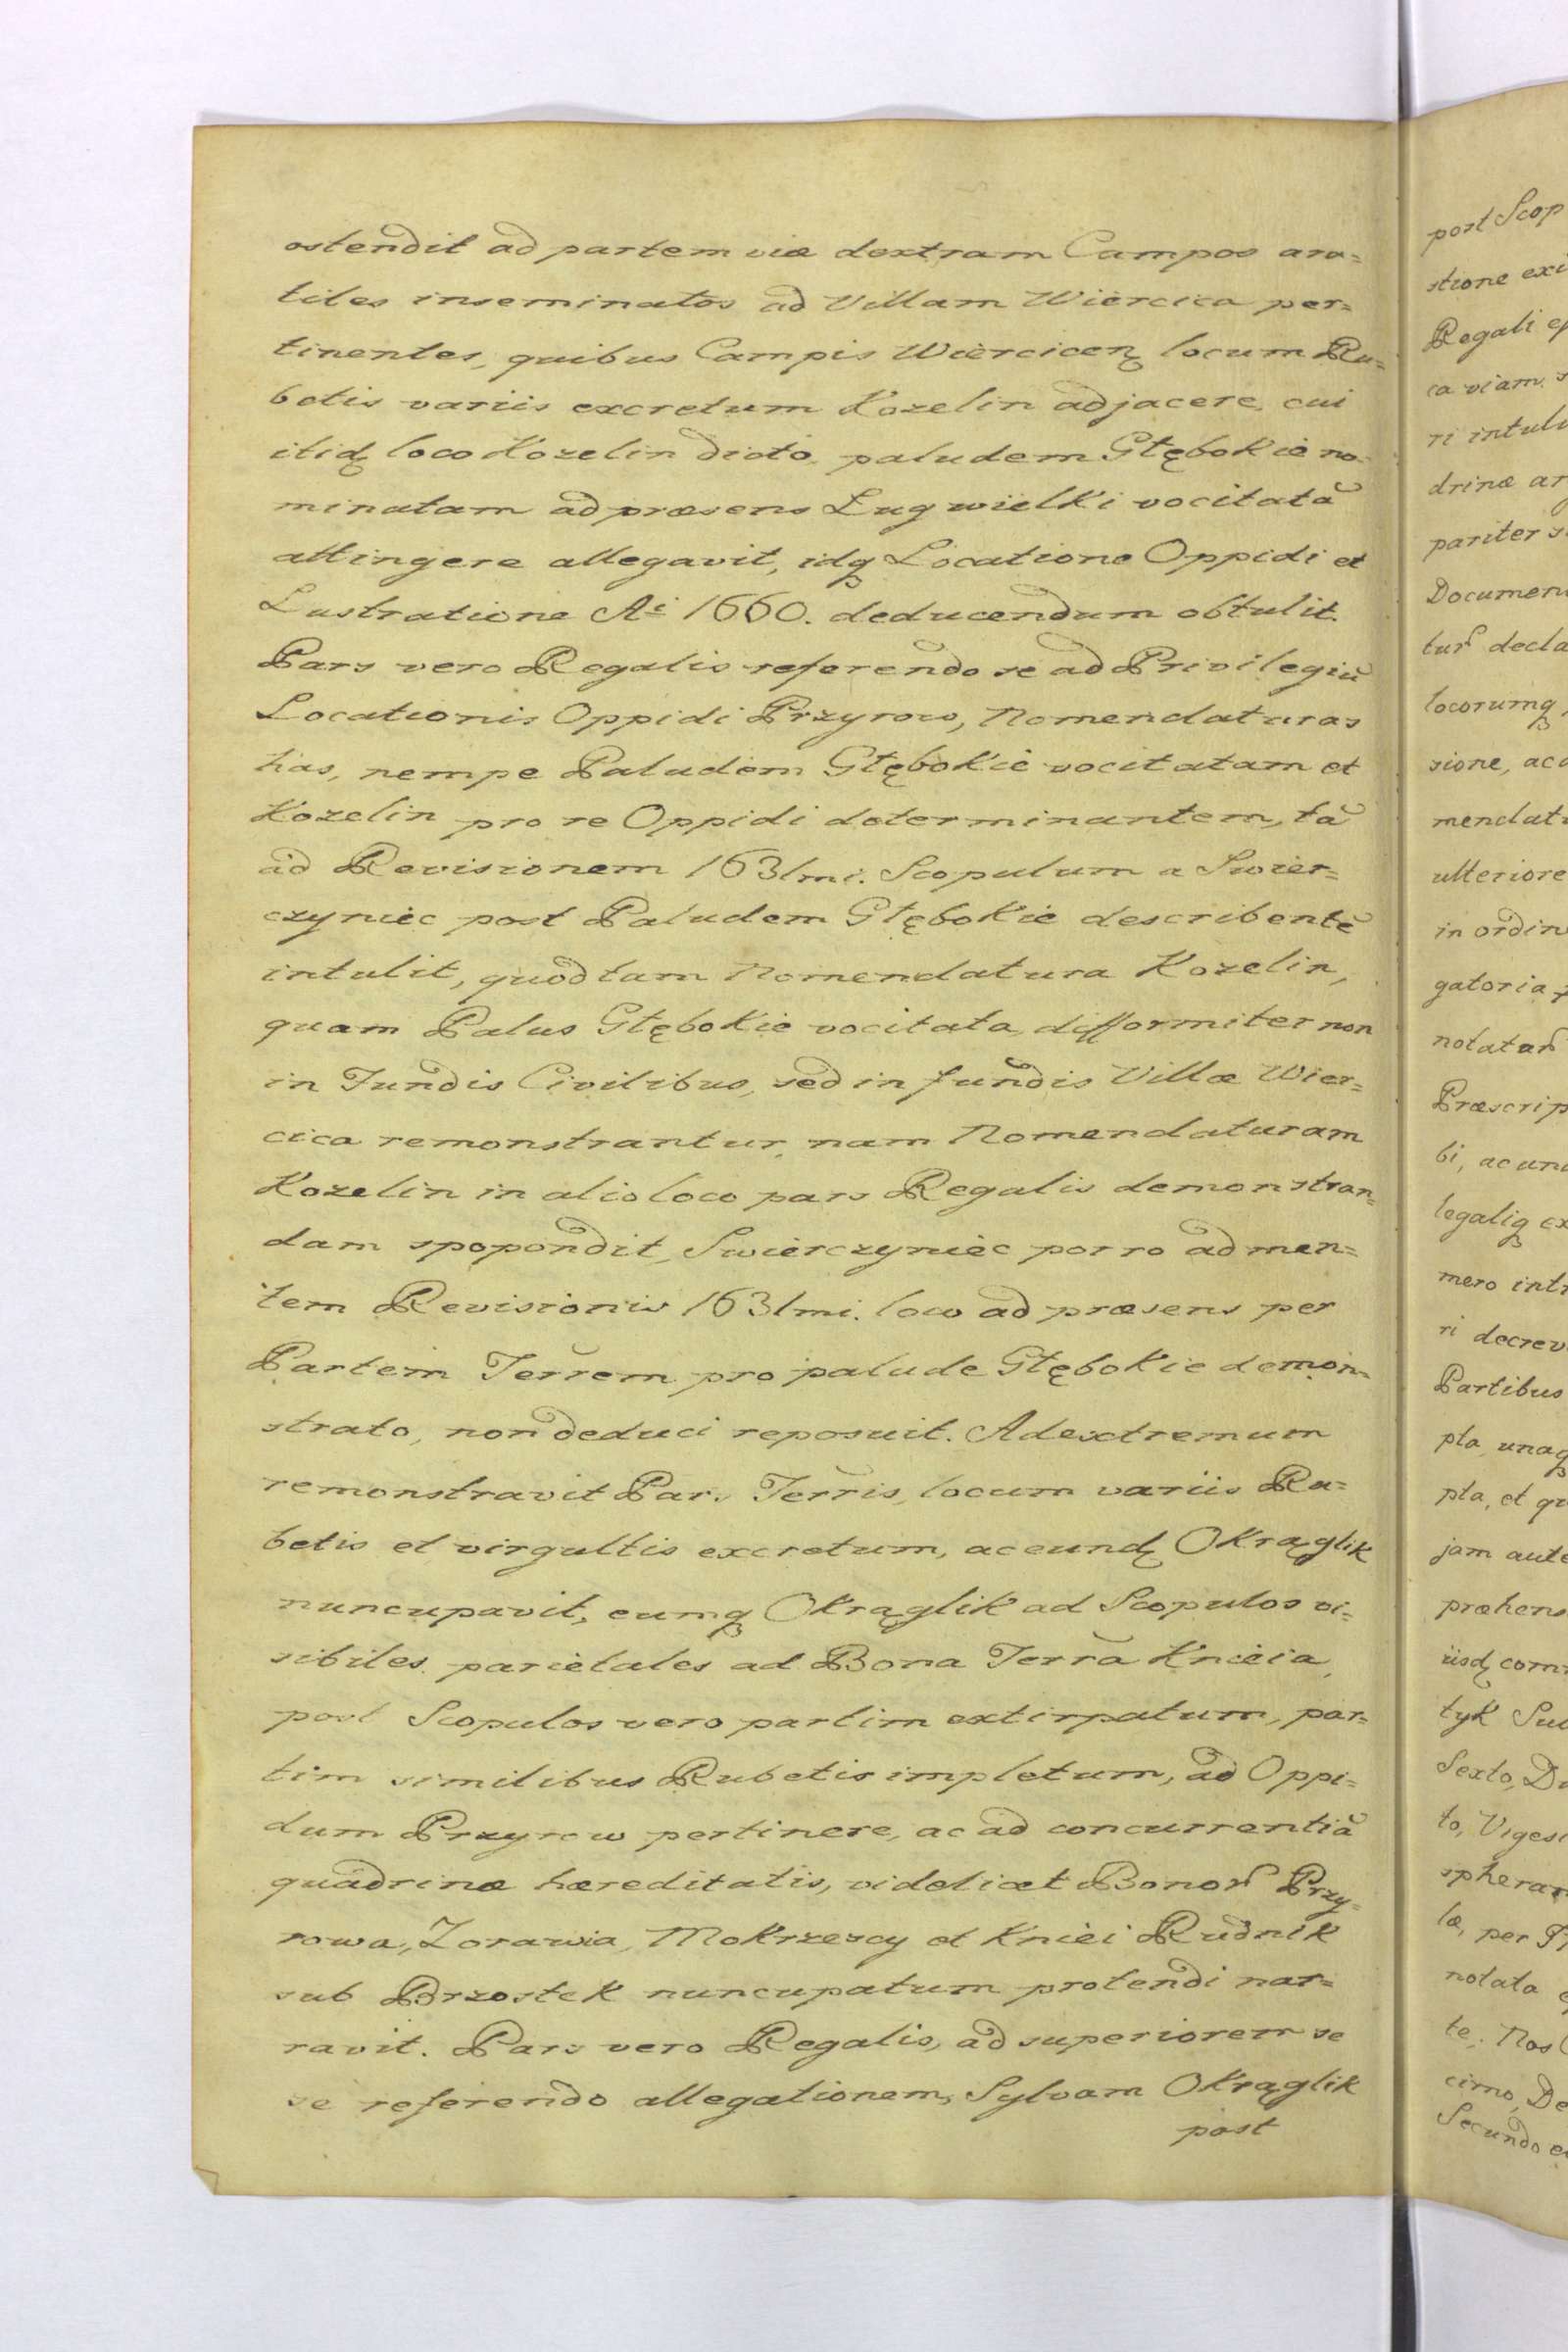 ostendit ad partem viæ dextram Campos ara=
tiles inseminatos ad Villam Wiercica per=
tinentes, quibus Campis Wiercicen̄ locum Ru=
betis variis excretum Kozelin adjacere, cui
itidꝫ loco Kozelin dicto paludem Głębokie no=
minatam ad præsens Ług wielki vocitatā
attingere allegavit, idqꝫ Locatione Oppidi et
Lustratione Ai 1660. deducendum obtulit.
Pars vero Regalis referendo se ad Privilegiū
Locationis Oppidi Przyrow, Nomenclaturas
has, nempe Paludem Głębokie vocitatam et
Kozelin pro re Oppidi determinantem, tā
ad Revisionem 1631mi. Scopulum a Swier=
czyniec post Paludem Głębokie describentē
intulit, quod tam Nomenclatura Kozelin,
quam Palus Głębokie vocitata, difformiter non
in Fundis Civilibus, sed in fundis Villæ Wier=
cica remonstrantur, nam Nomenclaturam
Kozelin in alio loco pars Regalis demonstran=
dam spopondit, Swierczyniec porro ad men=
tem Revisionis 1631mi. loco ad præsens per
Partem Terrem pro palude Głębokie demon=
strato, non deduci reposuit. Ad extremum
remonstravit Pars Terris, locum variis Ru=
betis et virgultis excretum, ac eundꝫ Okrąglik
nuncupavit, eumqꝫ Okrąglik ad Scopulos vi=
sibiles parietales ad Bona Terrā Knieia,
post Scopulos vero partim extirpatum, par=
tim similibus Rubetis impletum, ad Oppi=
dum Przyrow pertinere, ac ad concurrentiā
quadrinæ hæreditatis, videlicet Bonor Przy=
rowa, Zorawia, Mokrzeszy et Kniei Rudnik
sub Brzostek nuncupatum protendi nar=
ravit. Pars vero Regalis, ad superiorem se
se referendo allegationem, Sylvam Okrąglik
post
post Scop
stione exi
Regali
ca viam
ri intul
drinæ ar
pariter
Documen
tur decla
locorumqꝫ
sione, ac
menclat
ulteriore
in ordin
gatoria
notatar
Præscrip
bi, ac un
legaliqꝫ ex
mero int
ri decrev
Partibus
pta, unaq
pta, et q
jam aute
præhens
iisdꝫ com
tyk Su
Sexto, D
to, Viges
spherar
la, per
notata
te. Nos
cimo, De
Secundo